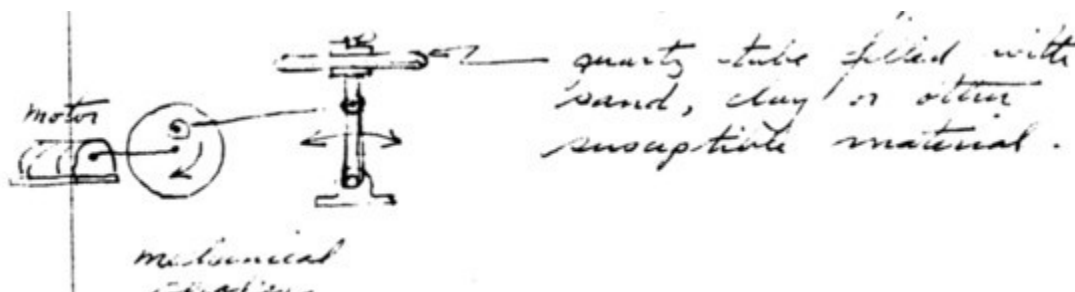 quartz tube filled with
sand, clay or other
susceptible material.
motor
mechanical